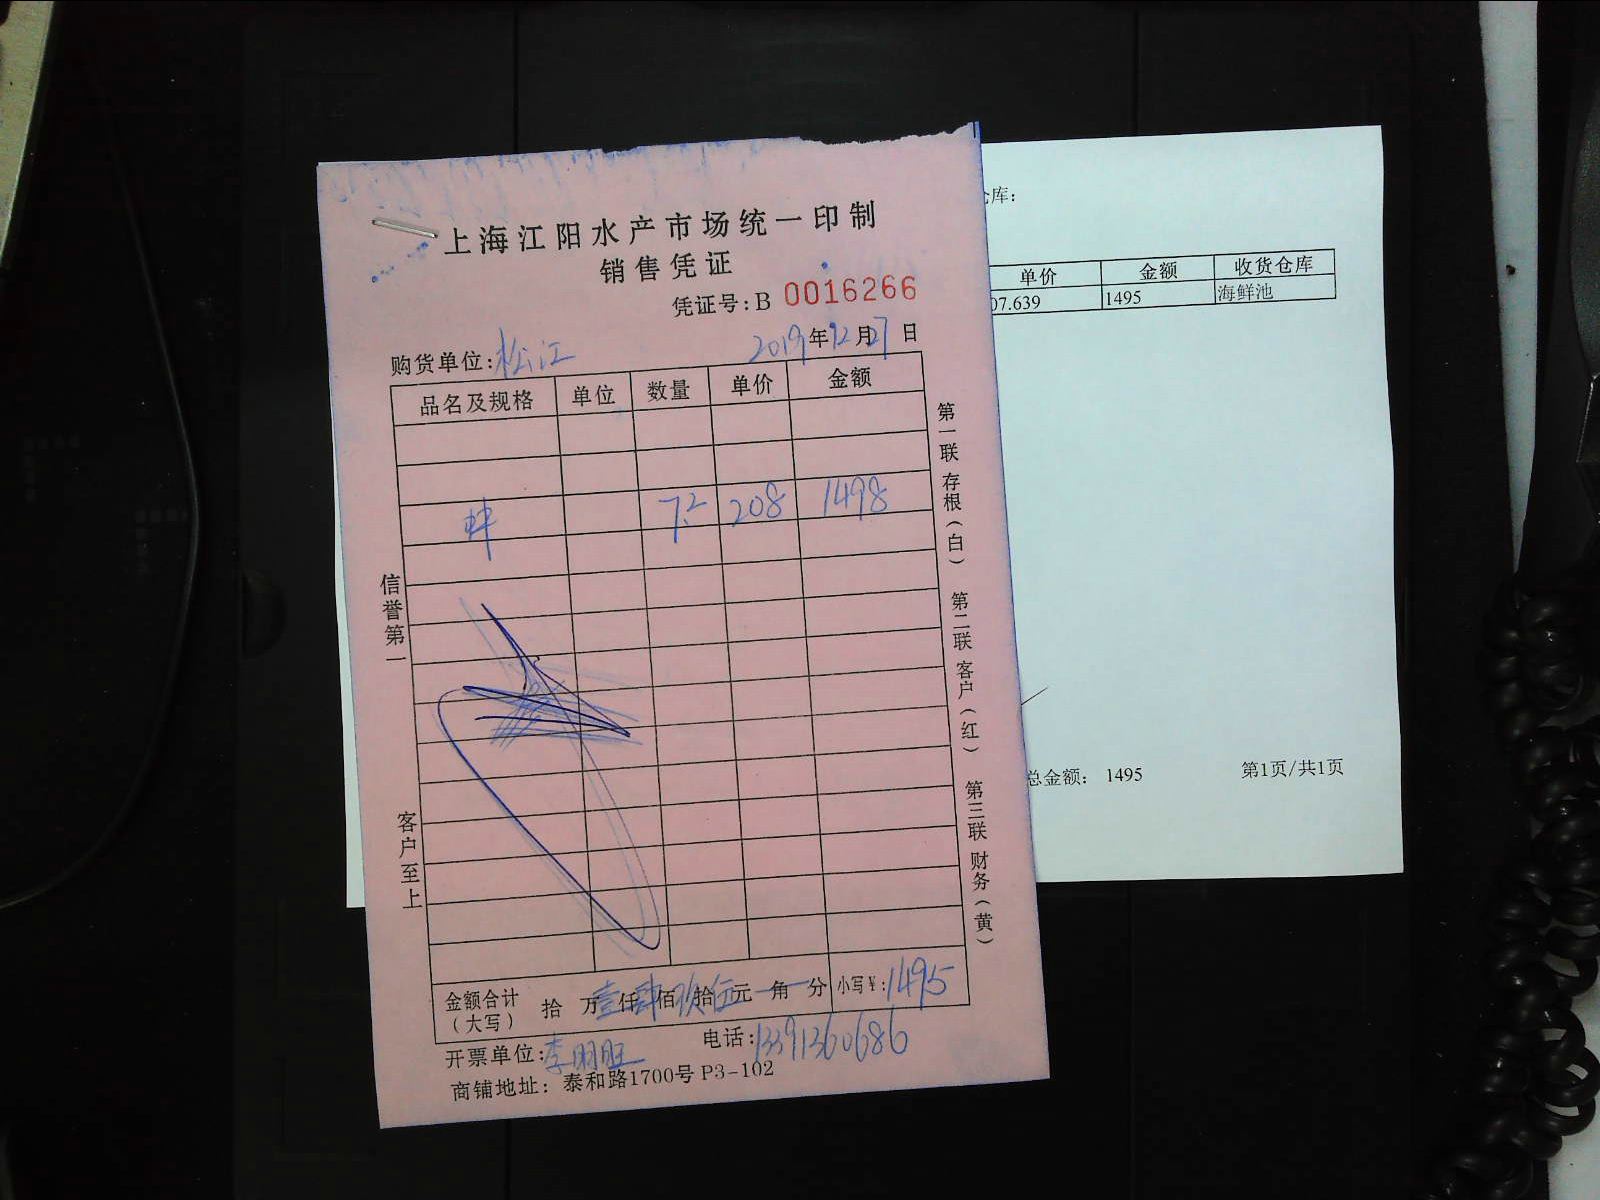 上海江阳水产市场统一印制
销售凭证
凭证号:B 0016266
购货单位:松江 2019年12月27日
品名及规格 单位 数量 单价 金额
蚌 7.2 208 1498
金额合计(大写) 拾 万壹仟肆佰玖拾伍元 角 分 小写¥:1495
开票单位:李明旺 电话:13391360686
商铺地址: 泰和路1700号 P3-102
信誉第一
客户至上
第一联 存根(白) 第二联 客户(红) 第三联 财务(黄)
仓库:
单价 金额 收货仓库
07.639 1495 海鲜池
总金额: 1495 第1页/共1页